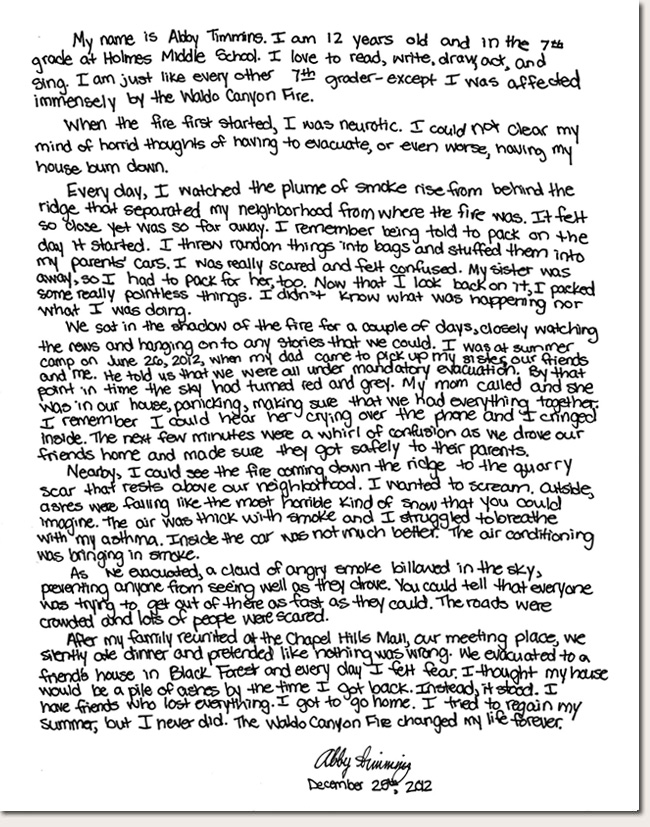 My name is Abby Timmins. I am 12 years old and in the 7th
grade at Holmes Middle School. I love to read, write, draw, act, and
sing. I am just like every other 7th grader- except I was affected
immensely by the Waldo Canyon Fire.
When the fire first started, I was neurotic. I could not clear my
mind of horrid thoughts of having to evacuate, or even worse, having my
house burn down.
Every day, I watched the plume of smoke rise from behind the
ridge that separated my neighborhood from where the fire was. It felt
so close yet was so far away. I remember being told to pack on the
day it started. I threw random things into bags and stuffed them into
my parents' cars. I was really scared and felt confused. My sister was
away, so I had to pack for her, too. Now that I look back on it, I packed
some really pointless things. I didn't know what was happening nor
what I was doing.
We sat in the shadow of the fire for a couple of days, closely watching
the news and hanging on to any stories that we could. I was at summer
camp on June 26, 2012, when my dad came to pick up my sister, our friends
and me. He told us that we were all under mandatory evacuation. By that
point in time the sky had turned red and grey. My mom called and she
was in our house, panicking, making sure that we had everything together.
I remember I could hear her crying over the phone and I cringed
inside. The next few minutes were a whirl of confusion as we drove our
friends home and made sure they got safely to their parents.
Nearby, I could see the fire coming down the ridge to the quarry
scar that rests above our neighborhood. I wanted to scream. Outside,
ashes were falling like the most horrible kind of snow that you could
imagine. The air was thick with smoke and I struggled to breathe
with my asthma. Inside the car was not much better. The air conditioning
was bringing in smoke.
As we evacuated, a cloud of angry smoke billowed in the sky,
preventing anyone from seeing well as they drove. You could tell that everyone
was trying to get out of there as fast as they could. The roads were
crowded and lots of people were scared.
After my family reunited at the Chapel Hills Mall, our meeting place, we
silently ate dinner and pretended like nothing was wrong. We evacuated to a
friend's house in Black Forest and every day I felt fear. I thought my house
would be a pile of ashes by the time I got back. Instead, it stood. I
have friends who lost everything. I got to go home. I tried to regain my
summer, but I never did. The Waldo Canyon Fire changed my life forever.
Abby Timmins
December 28th, 2012